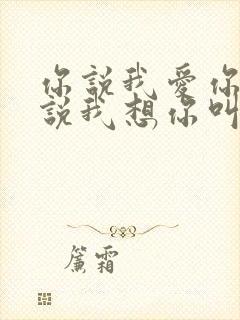 你說我愛你
說我想你叫
簾霜